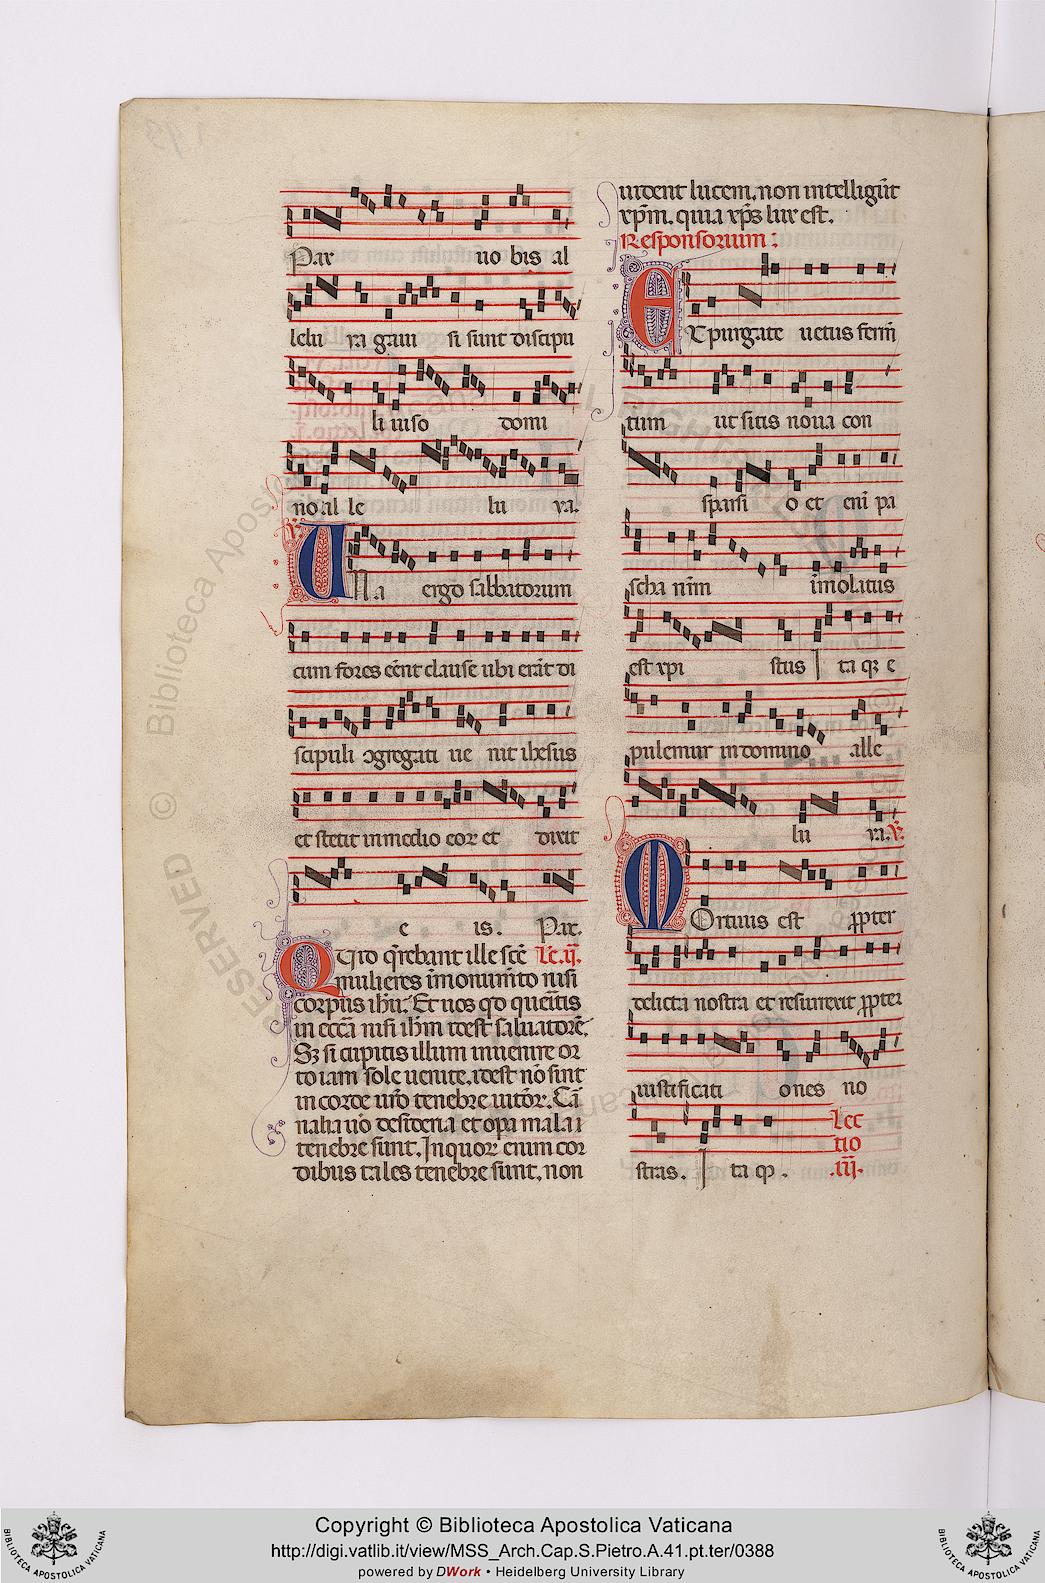 Pax uo bis al
lelu ya gaui si sunt discipu
li uiso domi
no al le lu ya.
℣. Una ergo sabbatorum
cum fores eēnt clause ubi erāt di
scipuli ꝯgregati ue nit ihesus
et stetit in medio eoꝝ et dixit
e is. Pax.
Qt̄ro q̄rebant ille scē Lc̄. ij.
mulieres ī monumēto nisi
corpus ihū. Et uos qd̓ queritis
in ecc̄a nisi ihm̄ idest saluatorē.
Sꝫ si cupitis illum inuenire or
to iam sole uenite. idest nō sint
in corde ur̄o tenebre uitioꝝ. Car
nalia u̓o desideria et opa mala
tenebre sunt. In quoꝝ enim cor
dibus tales tenebre sunt. non
uident lucem. non intelligūt
xp̄m. quia xp̄s lux est.
Responsorium:
Expurgate uetus ferm̄
tum ut sitis noua con
sparsi o et eni pa
scha nr̄m īmolatus
est xpi stus ita qꝫ e
pulemur in domino alle
lu ya. ℣.
Mortuus est ꝓpter
delicta nostra et resurrexit ꝓpter
iustificati ones no
stras. ita qꝫ. Lec
tio
.iij.
RESERVED © Biblioteca Apostolica Vaticana
BIBLIOTECA APOSTOLICA VATICANA
Copyright © Biblioteca Apostolica Vaticana
http://digi.vatlib.it/view/MSS_Arch.Cap.S.Pietro.A.41.pt.ter/0388
powered by DWork • Heidelberg University Library
BIBLIOTECA APOSTOLICA VATICANA